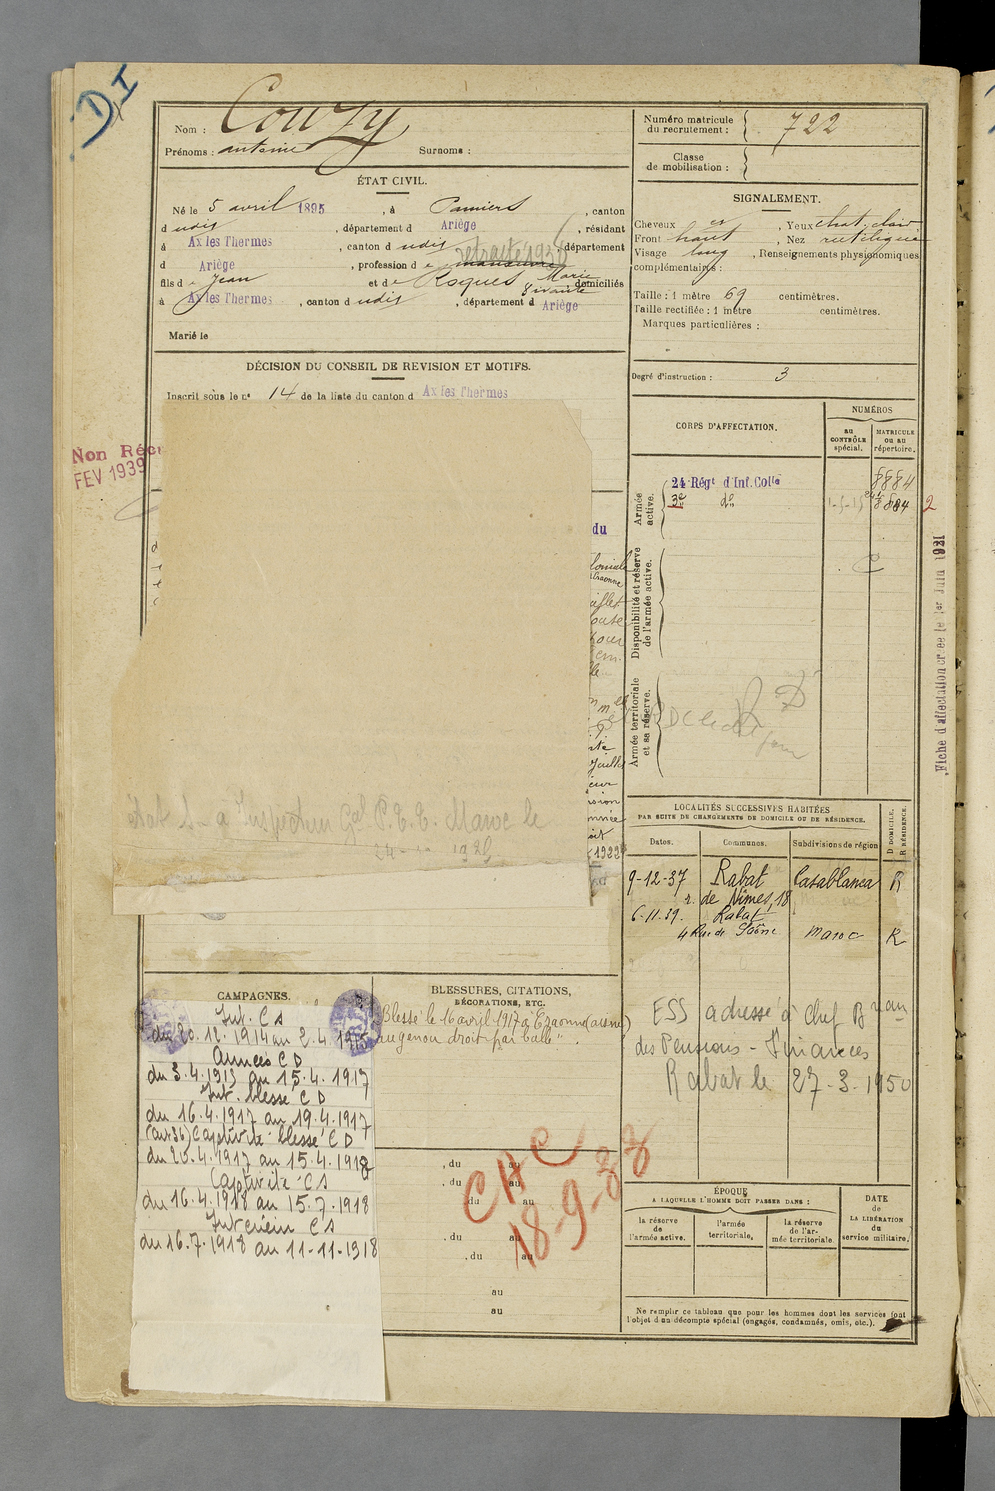 DI
Nom : Couzy
Prénoms : antoine Surnoms :
ÉTAT CIVIL.
Né le 5 avril 1895, à Pamiers, canton
dudis, département d Ariège, résidant
à Ax les Thermes, canton dudis, département
d Ariège, profession de manœuvre retraité 1938
fils de Jean et de Roques Marie domiciliés
à Ax les Thermes, canton dudis, département d Ariège
Marié le
DÉCISION DU CONSEIL DE REVISION ET MOTIFS.
Inscrit sous le n° 14 de la liste du canton d Ax les Thermes
Non Réc
FEV 1939
du
1922
Maroc le
CAMPAGNES.
Int. CS
du 20.12.1914 au 2.4.1915
Armées CD
du 3.4.1915 au 15.4.1917
Int. blessé CD
du 16.4.1917 au 19.4.1917
(art 36) Captivité blessé CD
du 20.4.1917 au 15.4.1918
Captivité CS
du 16.4.1918 au 15.7.1918
Intérieur CS
du 16.7.1918 au 11-11-1918
BLESSURES, CITATIONS,
DÉCORATIONS, ETC.
Blessé le 16 avril 1917 à Craonne (aisne)
au genou droit par balle".
, du au
, du au
du au
, du au
, du au
au
au
CHC
18-9-38
Numéro matricule
du recrutement : 722
Classe
de mobilisation :
SIGNALEMENT.
Cheveux , Yeux chat. clair
Front haut , Nez rectiligne
Visage long , Renseignements physionomiques
complémentaires :
Taille : 1 mètre 69 centimètres.
Taille rectifiée : 1 mètre centimètres.
Marques particulières :
Degré d'instruction : 3
CORPS D'AFFECTATION.
NUMÉROS
au
CONTRÔLE
spécial.
MATRICULE
ou au
répertoire.
Armée
active.
24 Régt d'Inf. Colle 8884
3e do 8884 2
Disponibilité et réserve
de l'armée active.
Armée territoriale
et sa réserve.
Fiche d'affectation créée le 1er Juin 1921
LOCALITÉS SUCCESSIVES HABITÉES
PAR SUITE DE CHANGEMENTS DE DOMICILE OU DE RÉSIDENCE.
Dates. Communes. Subdivisions de région
D DOMICILE.
R RÉSIDENCE.
9-12-37 Rabat Casablanca R
r. de Nîmes, 18
6.11.39. Rabat
4 Rue de Saône Maroc R
ESS adressé à Chef Breau
des Pensions - Finances
Rabat le 27-3-1950
ÉPOQUE
A LAQUELLE L'HOMME DOIT PASSER DANS :
la réserve
de
l'armée active.
l'armée
territoriale.
la réserve
de l'ar-
mée territoriale.
DATE
de
LA LIBÉRATION
du
service militaire.
Ne remplir ce tableau que pour les hommes dont les services font
l'objet d'un décompte spécial (engagés, condamnés, omis, etc.).